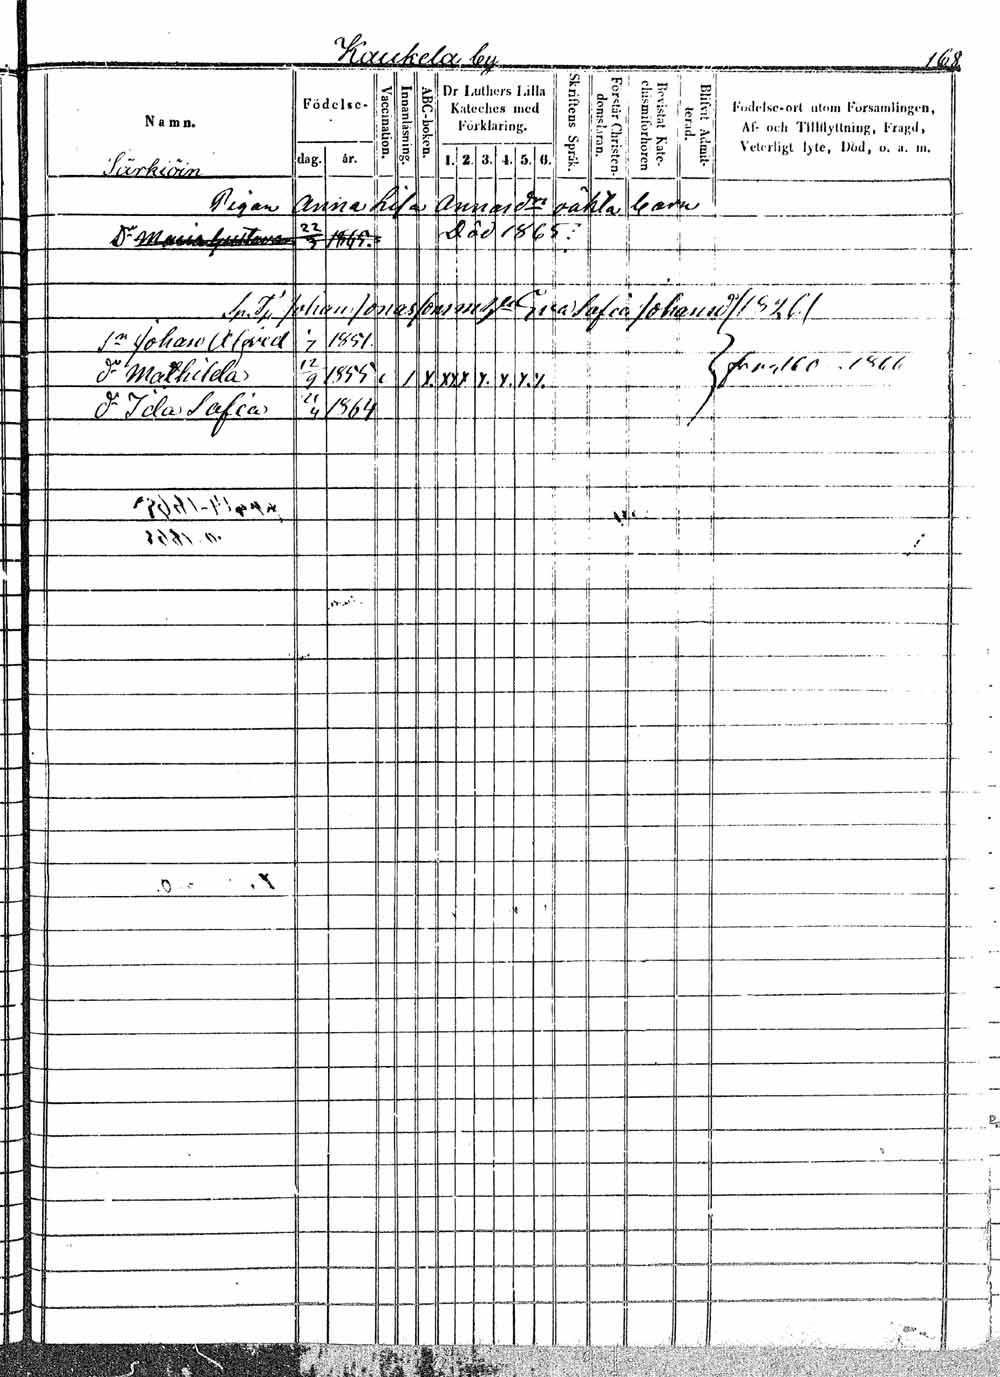 Kaukela by 168
Namn.
Födelse-
dag. år.
Vaccination.
Innanläsning.
ABC-boken.
Dr Luthers Lilla Kateches med Förklaring.
1. 2. 3. 4. 5. 6.
Skriftens Språk.
Förstår Christendomsläran.
Bevistat Katechismiförhören
Blifvit Admitterad.
Födelse-ort utom Församlingen,
Af- och Tillflyttning, Frägd,
Veterligt lyte, Död, o. a. m.
Särkiöin
Pigan Anna Lisa Annas drs oäkta barn
Dr Maria Gustava 22/3 1865. Död 1865.
Johan Jonas Eva Safia Johansd 1826
Sn Johan Alfred 1851
dr Mathilda 12/9 1855 1 x xxx x. x. x. x. fr. pag 160 1866
dr Ida Safia 21/4 1864